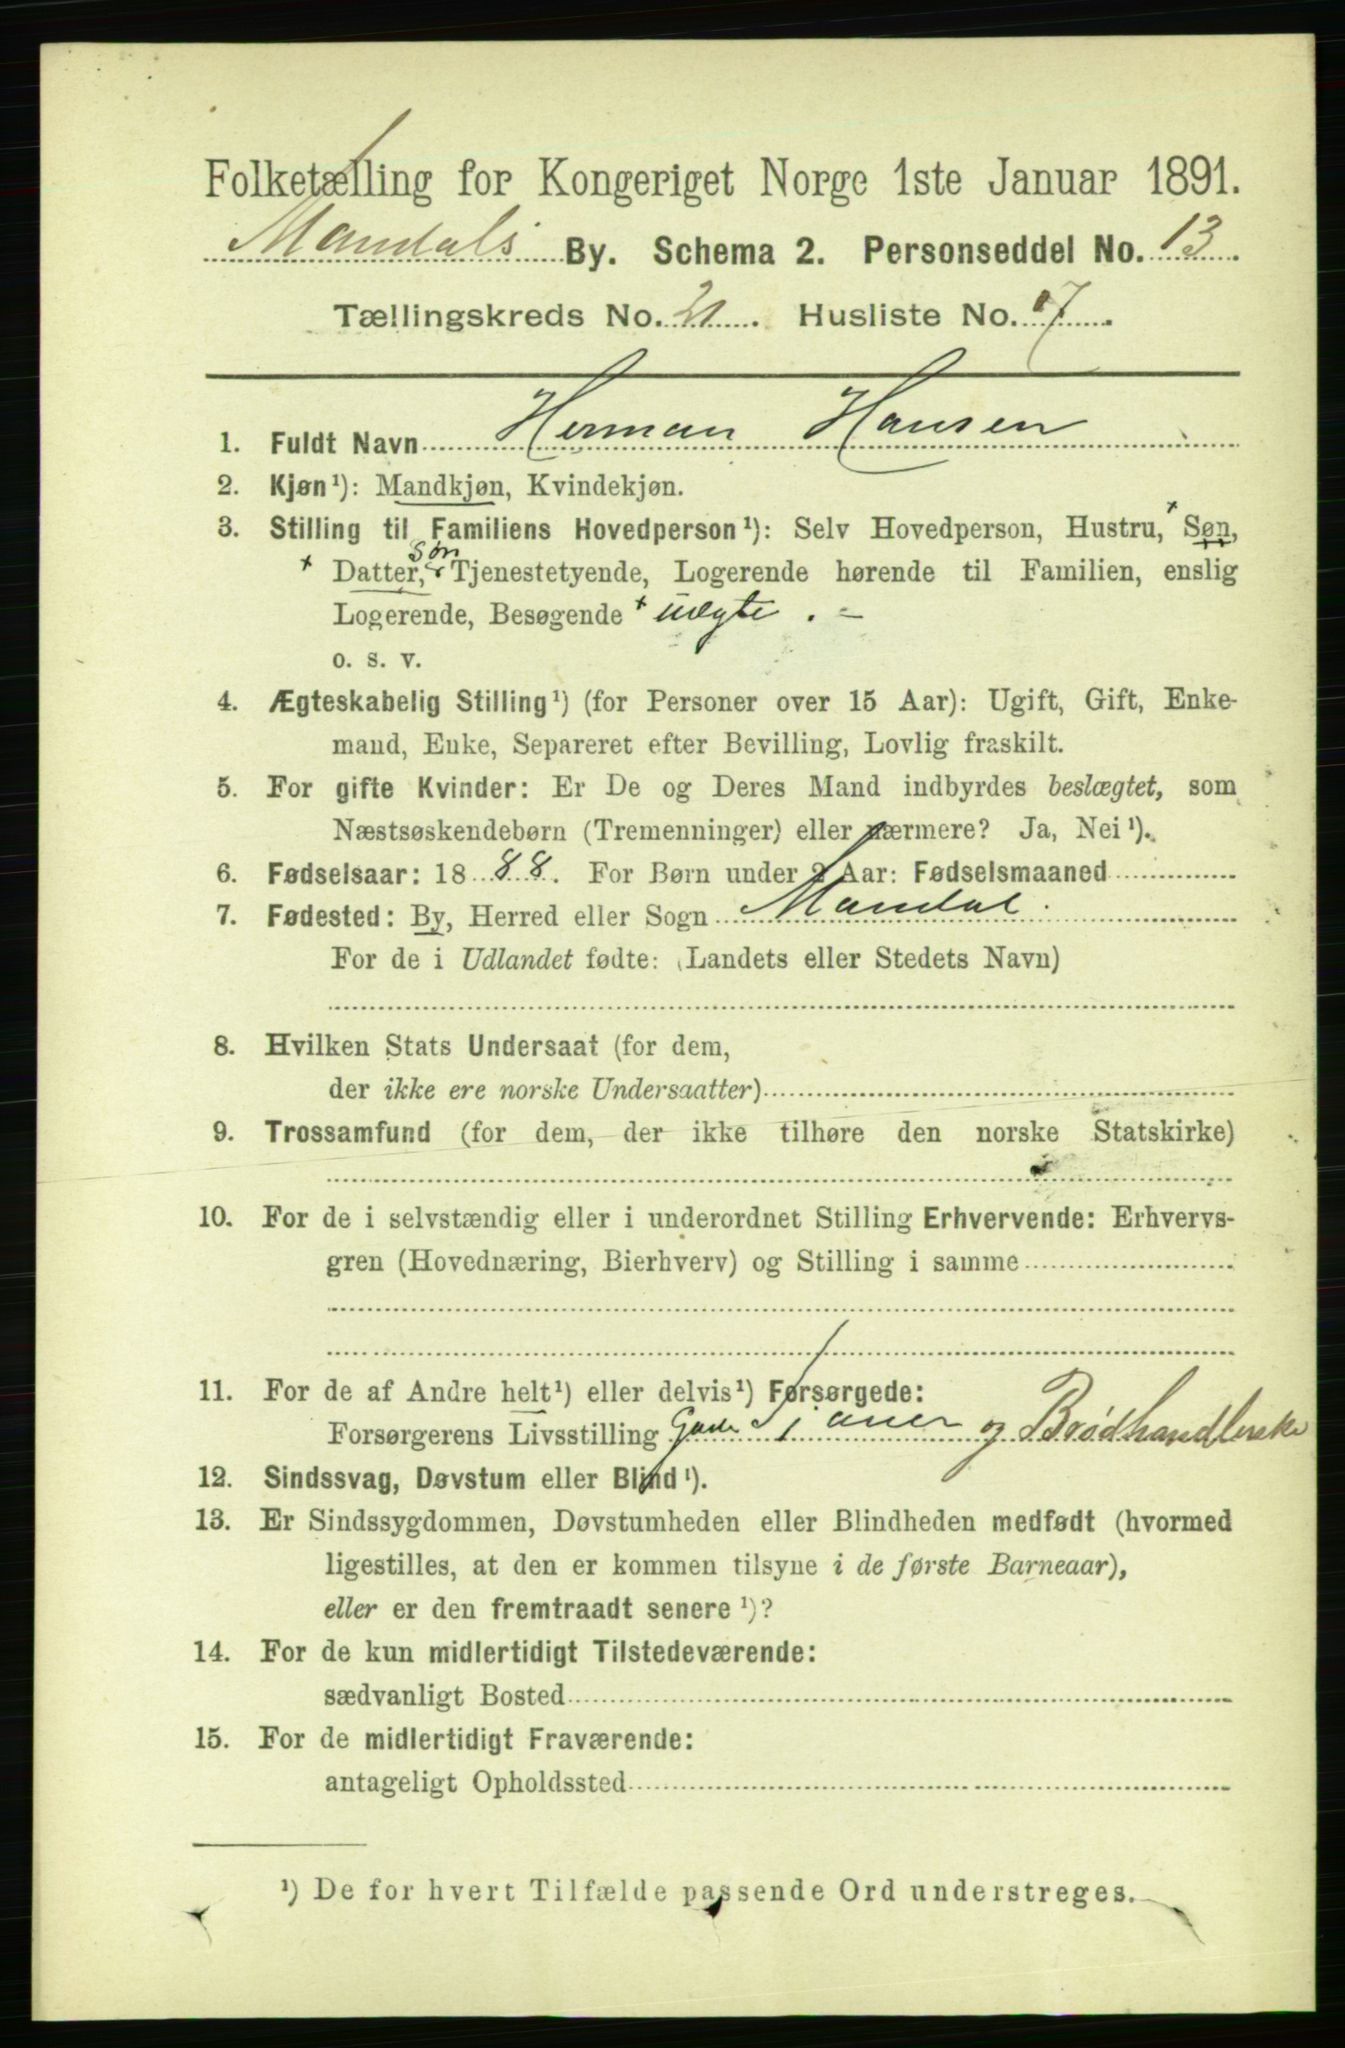 Folketælling for Kongeriget Norge 1ste Januar 1891.
Mandals By. Schema 2. Personseddel No. 13.
Tællingskreds No. 21. Husliste No. 7.
1. Fuldt Navn Herman Hansen
2. Kjøn¹): Mandkjøn, Kvindekjøn.
3. Stilling til Familiens Hovedperson¹): Selv Hovedperson, Hustru, Søn,
Datter, søn Tjenestetyende, Logerende hørende til Familien, enslig
Logerende, Besøgende uægte.
o. s. v.
4. Ægteskabelig Stilling¹) (for Personer over 15 Aar): Ugift, Gift, Enke-
mand, Enke, Separeret efter Bevilling, Lovlig fraskilt.
5. For gifte Kvinder: Er De og Deres Mand indbyrdes beslægtet, som
Næstsøskendebørn (Tremenninger) eller nærmere? Ja, Nei¹).
6. Fødselsaar: 1888. For Børn under 2 Aar: Fødselsmaaned
7. Fødested: By, Herred eller Sogn Mandal.
For de i Udlandet fødte: (Landets eller Stedets Navn)
8. Hvilken Stats Undersaat (for dem,
der ikke ere norske Undersaatter)
9. Trossamfund (for dem, der ikke tilhøre den norske Statskirke)
10. For de i selvstændig eller i underordnet Stilling Erhvervende: Erhvervs-
gren (Hovednæring, Bierhverv) og Stilling i samme
11. For de af Andre helt¹) eller delvis¹) Forsørgede:
Forsørgerens Livsstilling og Brødhandlerske
12. Sindssvag, Døvstum eller Blind¹).
13. Er Sindssygdommen, Døvstumheden eller Blindheden medfødt (hvormed
ligestilles, at den er kommen tilsyne i de første Barneaar),
eller er den fremtraadt senere¹)?
14. For de kun midlertidigt Tilstedeværende:
sædvanligt Bosted
15. For de midlertidigt Fraværende:
antageligt Opholdssted
¹) De for hvert Tilfælde passende Ord understreges.